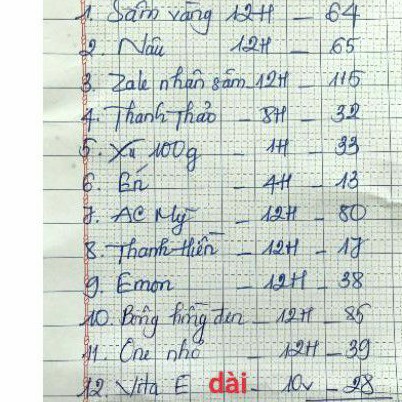 1. Sâm vàng 12H - 64
2. Nâu 12H - 65
3. Zale nhân sâm 12H - 115
4. Thanh Thảo - 8H - 32
5. Xu 100g - 1H - 33
6. Bú - 4H - 13
7. AC Mỹ - 12H - 80
8. Thanh Hiền - 12H - 17
9. Emon - 12H - 38
10. Bông hồng đen - 12H - 85
11. One nhỏ - 12H - 39
12. Vita E dài - 10v - 28